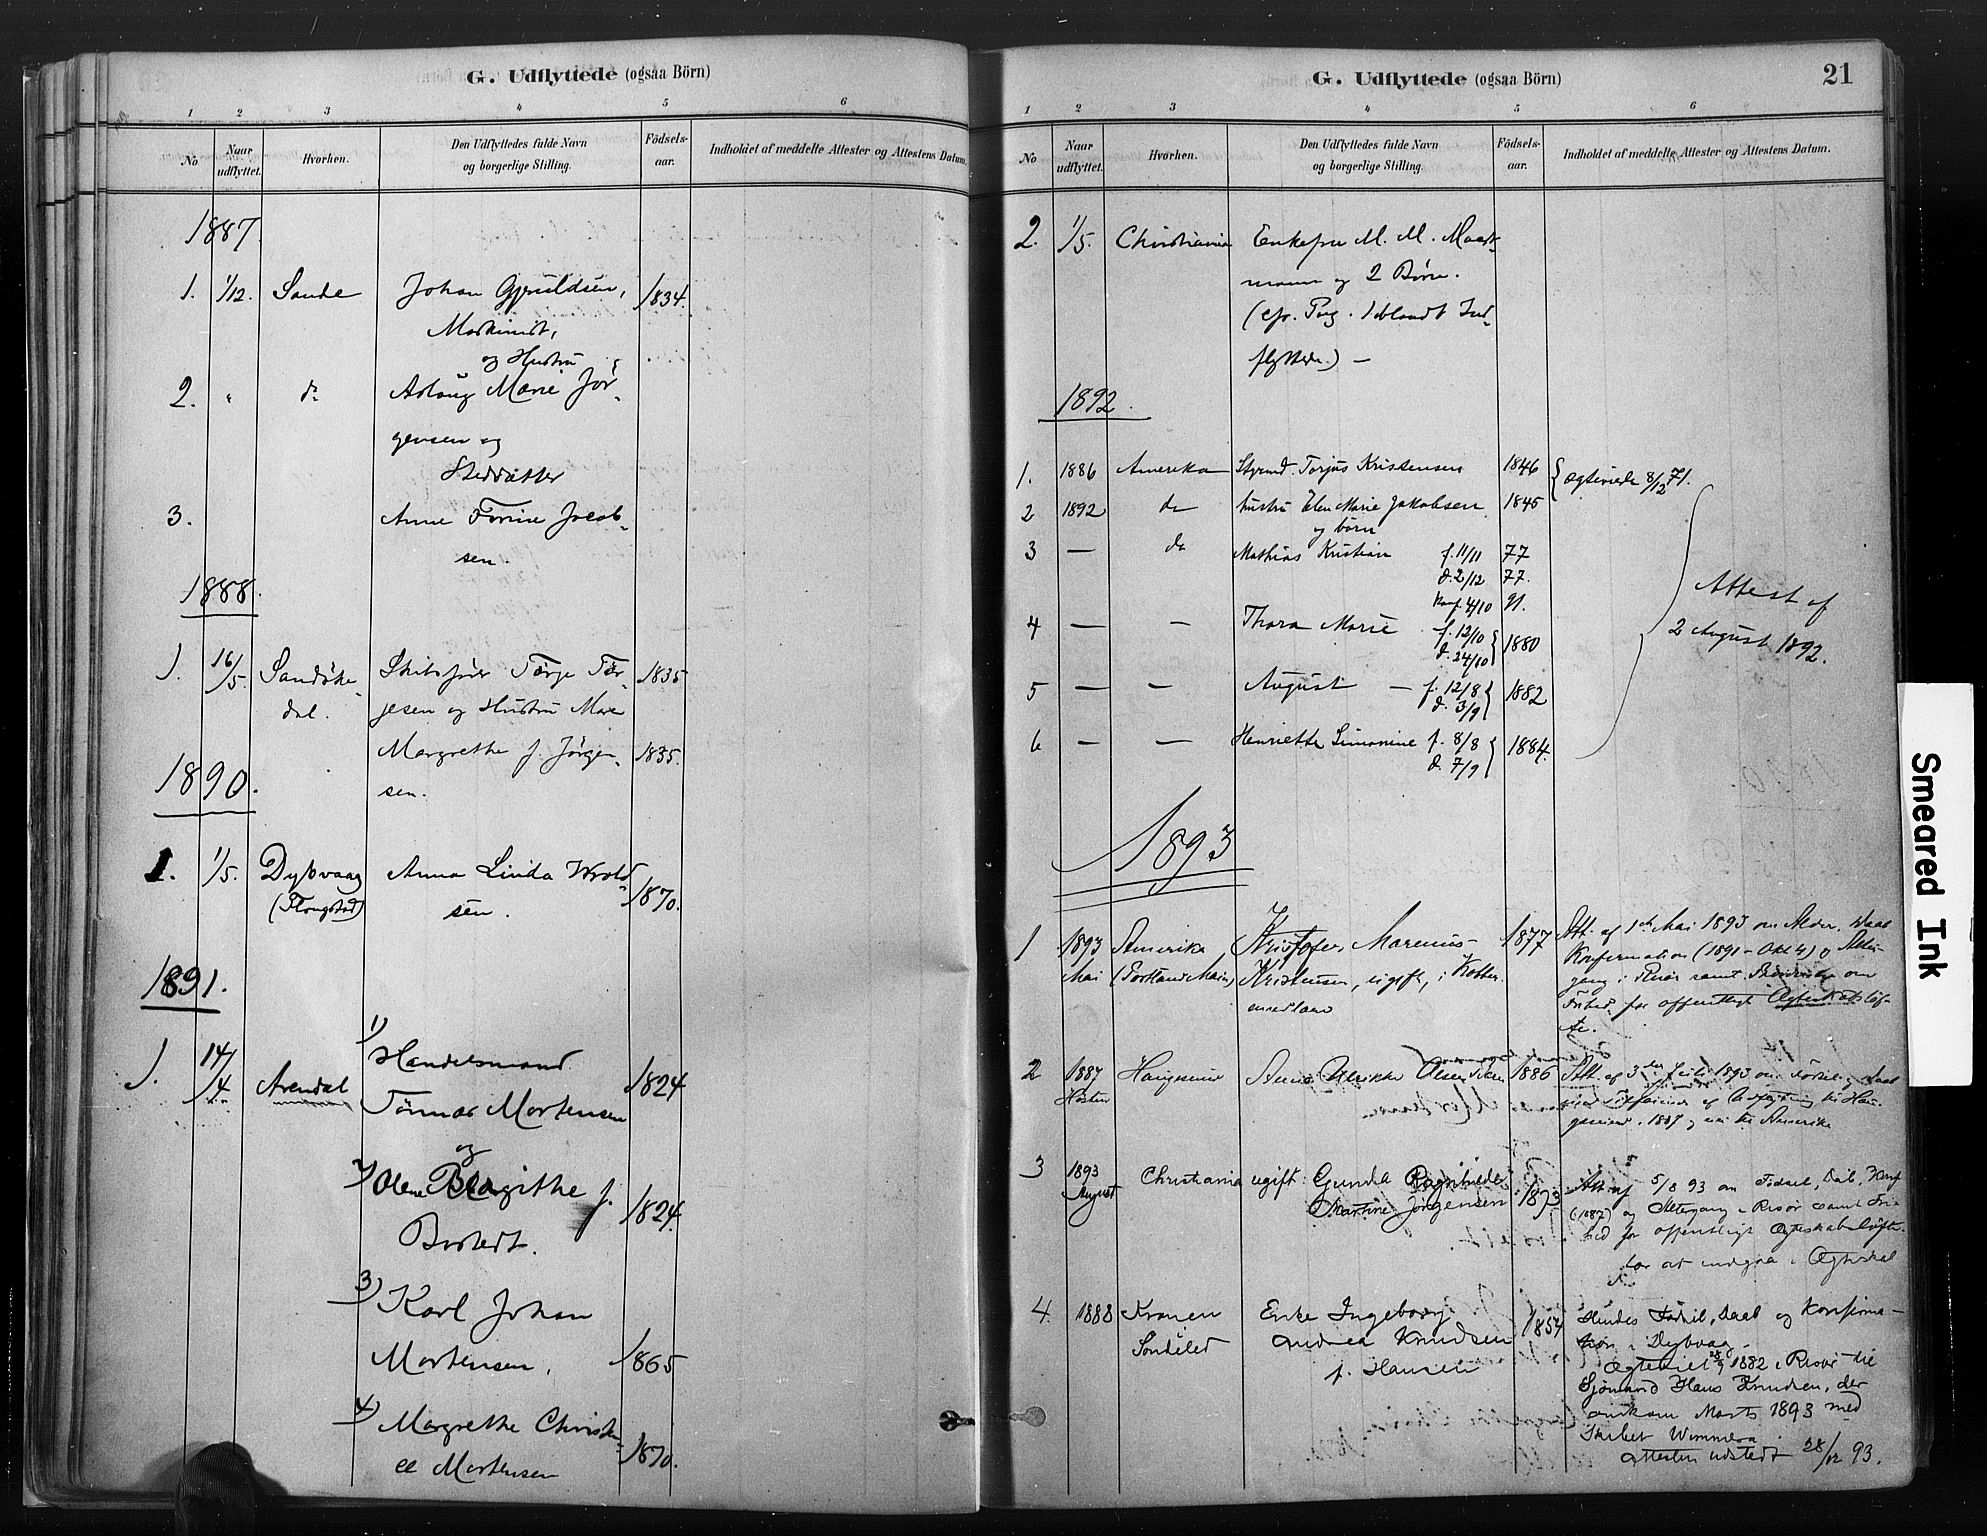 G. Udflyttede (ogsaa Börn)
1 2 3 4 5 6
No Naar udflyttet. Hvorhen. Den Udflyttedes fulde Navn og borgerlige Stilling. Födsels-aar. Indholdet af meddelte Attester og Attestens Datum.
1887.
1. 1/12. Sande Johan 1834.
og Hustru
2. " do Aslaug Marie Jör-
gensen og
Steddatter
3. Anne Jacob-
sen.
1888.
1. 16/5. Sandöke- Terje Ter- 1835
dal. jesen og Hustru Maren
Margrethe f. Jörgen- 1835.
sen.
1890.
1. 1/5. Dybvaag Anna Linda Wrold- 1870.
sen.
1891.
1. 14/4 Arendal 1) Handelsmand 1824
Tönnas Mortensen
og
2) Olene Birgithe f. 1824
3) Karl Johan
Mortensen, 1865
4) Margrethe Christi- 1870.
ne Mortensen
G. Udflyttede (ogsaa Börn) 21
1 2 3 4 5 6
No Naar udflyttet. Hvorhen. Den Udflyttedes fulde Navn og borgerlige Stilling. Födsels-aar. Indholdet af meddelte Attester og Attestens Datum.
2. 1/5. Christiania Enkefru M. M.
mann og 2 Börn.
(cfr. Pag. 1 blandt Ind-
flyttede.) —
1892.
1. 1886 Amerika Styrmd. Torjus Kristensen 1846 Ægteviede 8/12 71.
2 1892 do hustru Elen Marie Jakobsen 1845
og börn
3 — do Mathias Kristian f. 11/11 77
d. 2/12 77.
Konf. 4/10 91.
4 — — Thora Marie f. 12/10 1880
d. 24/10
Attest af
2 August 1892.
5 — — August — f. 12/8 1882
d. 3/9
6 — — Henriette Simonine f. 8/8 1884.
d. 7/9
1893
1 1893 Amerika Kristofer Marenius 1877 Att. af 1ste Mai 1893 om Alder, Daab
Mai (Portland Main) Kristensen, ugift, Konfirmation (1891 - Okt 4) og Alter-
gang i Risör samt om
Frihed for offentligt Ægteskabslöf-
te.
2 1887 Haugesund Anne Ulrikke Olsen 1886 Att. af 3die Juli 1893 om Födsel og Daab
Hösten af Udflytning til Hau-
gesund 1887 og nu til Amerika
3 1893 Christiania ugift Gunda Ragnhilde 1873 Att. af 5/8 93 om Födsel, Daab, Konf
August Martine Jörgensen (1887) og Altergang i Risör samt Fri-
hed for offentligt Ægteskabslöfte
for at indgaa i Ægteskab
4. 1888 Kranen Enke Ingeborg 1854 Hendes Födsel, Daab og Konfirma-
Söndeled Andrea Knudsen tion i Dybvaag
f. Hansen Ægteviet 1882 i Risör til
Sjömand Hans Knudsen, der
omkom Marts 1893 med
Skibet Wimmera
Attesten udstedt 28/12 93.
Smeared Ink